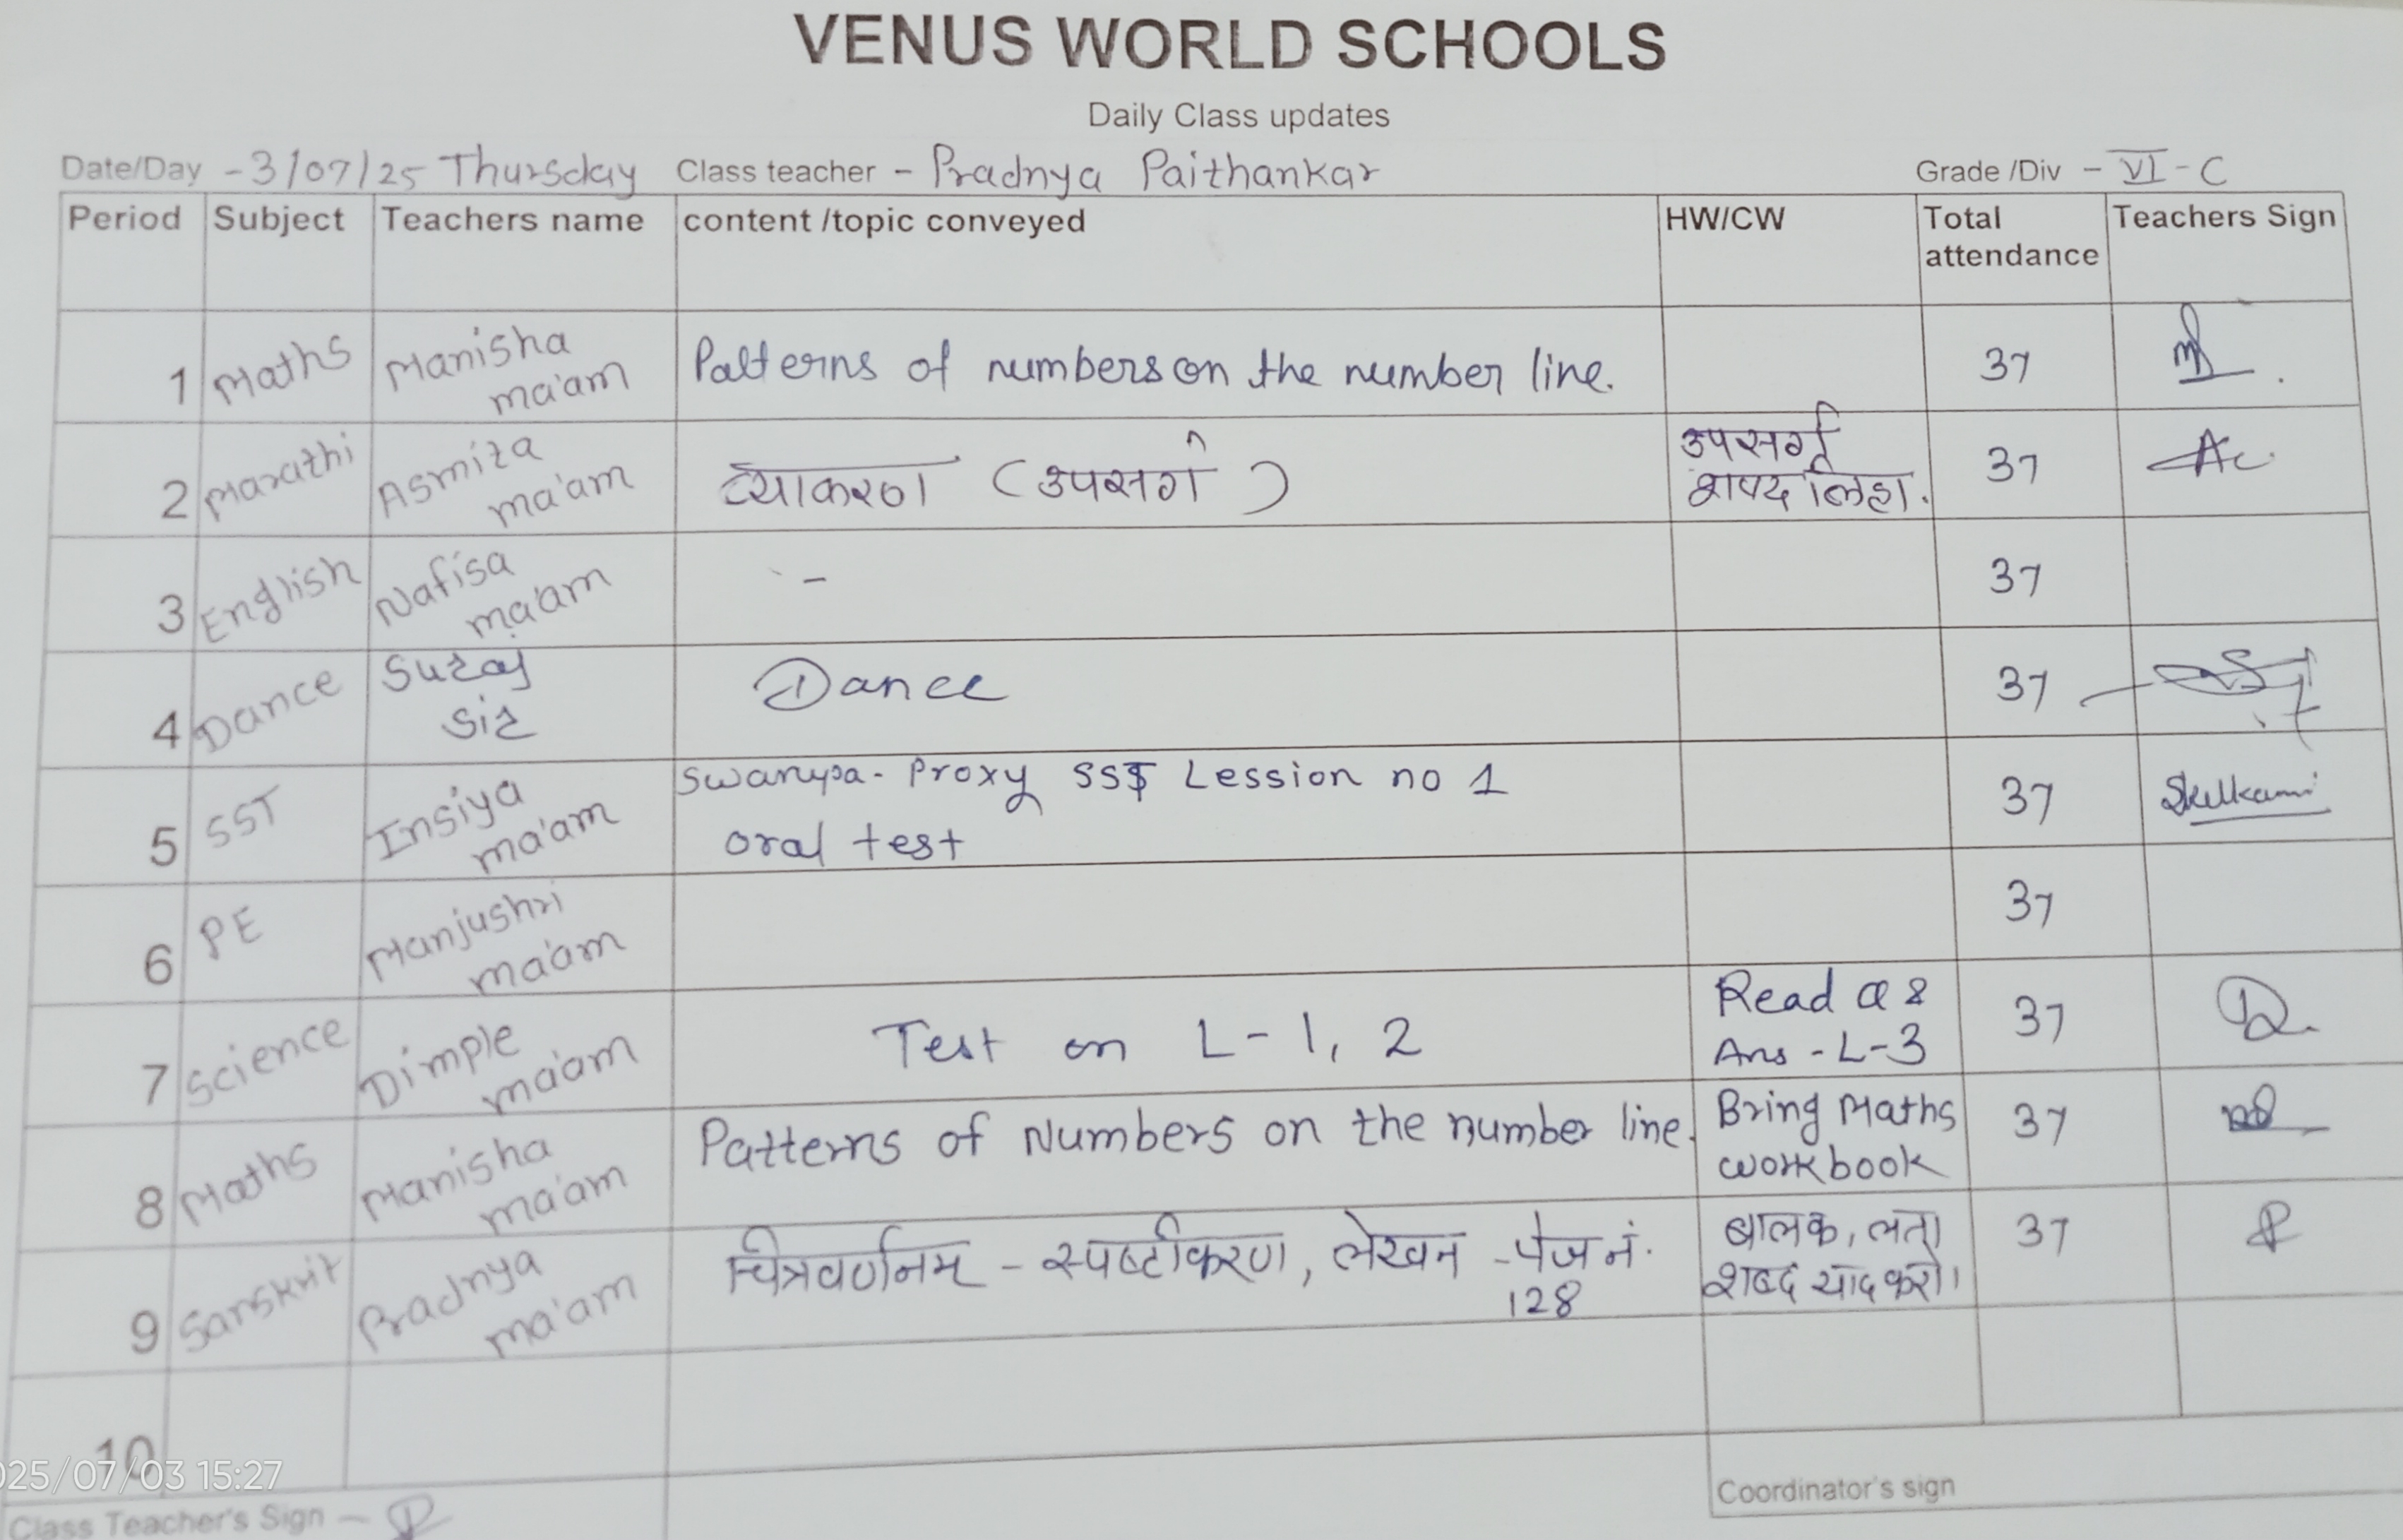 VENUS WORLD SCHOOLS
Daily Class updates
Date/Day - 3/07/25 Thursday Class teacher - Pradnya Paithankar Grade /Div - VI - C
Period Subject Teachers name content /topic conveyed HW/CW Total attendance Teachers Sign
1 Maths Manisha ma'am Patterns of numbers on the number line. 37
2 Marathi Asmita ma'am व्याकरण (उपसर्ग) उपसर्ग शब्द लिहा. 37
3 English Nafisa ma'am - 37
4 Dance Suraj sir Dance 37
5 SST Insiya ma'am Swarupa - Proxy SST Lession no 1 oral test 37 Skulkarni
6 PE Manjushri ma'am 37
7 Science Dimple ma'am Test on L-1, 2 Read Q & Ans - L-3 37
8 Maths Manisha ma'am Patterns of Numbers on the number line. Bring Maths workbook 37
9 Sanskrit Pradnya ma'am चित्रवर्णनम - स्पष्टीकरण, लेखन - पेज नं. 128 बालक, लता शब्द याद करो। 37
10
025/07/03 15:27
Class Teacher's Sign -
Coordinator's sign